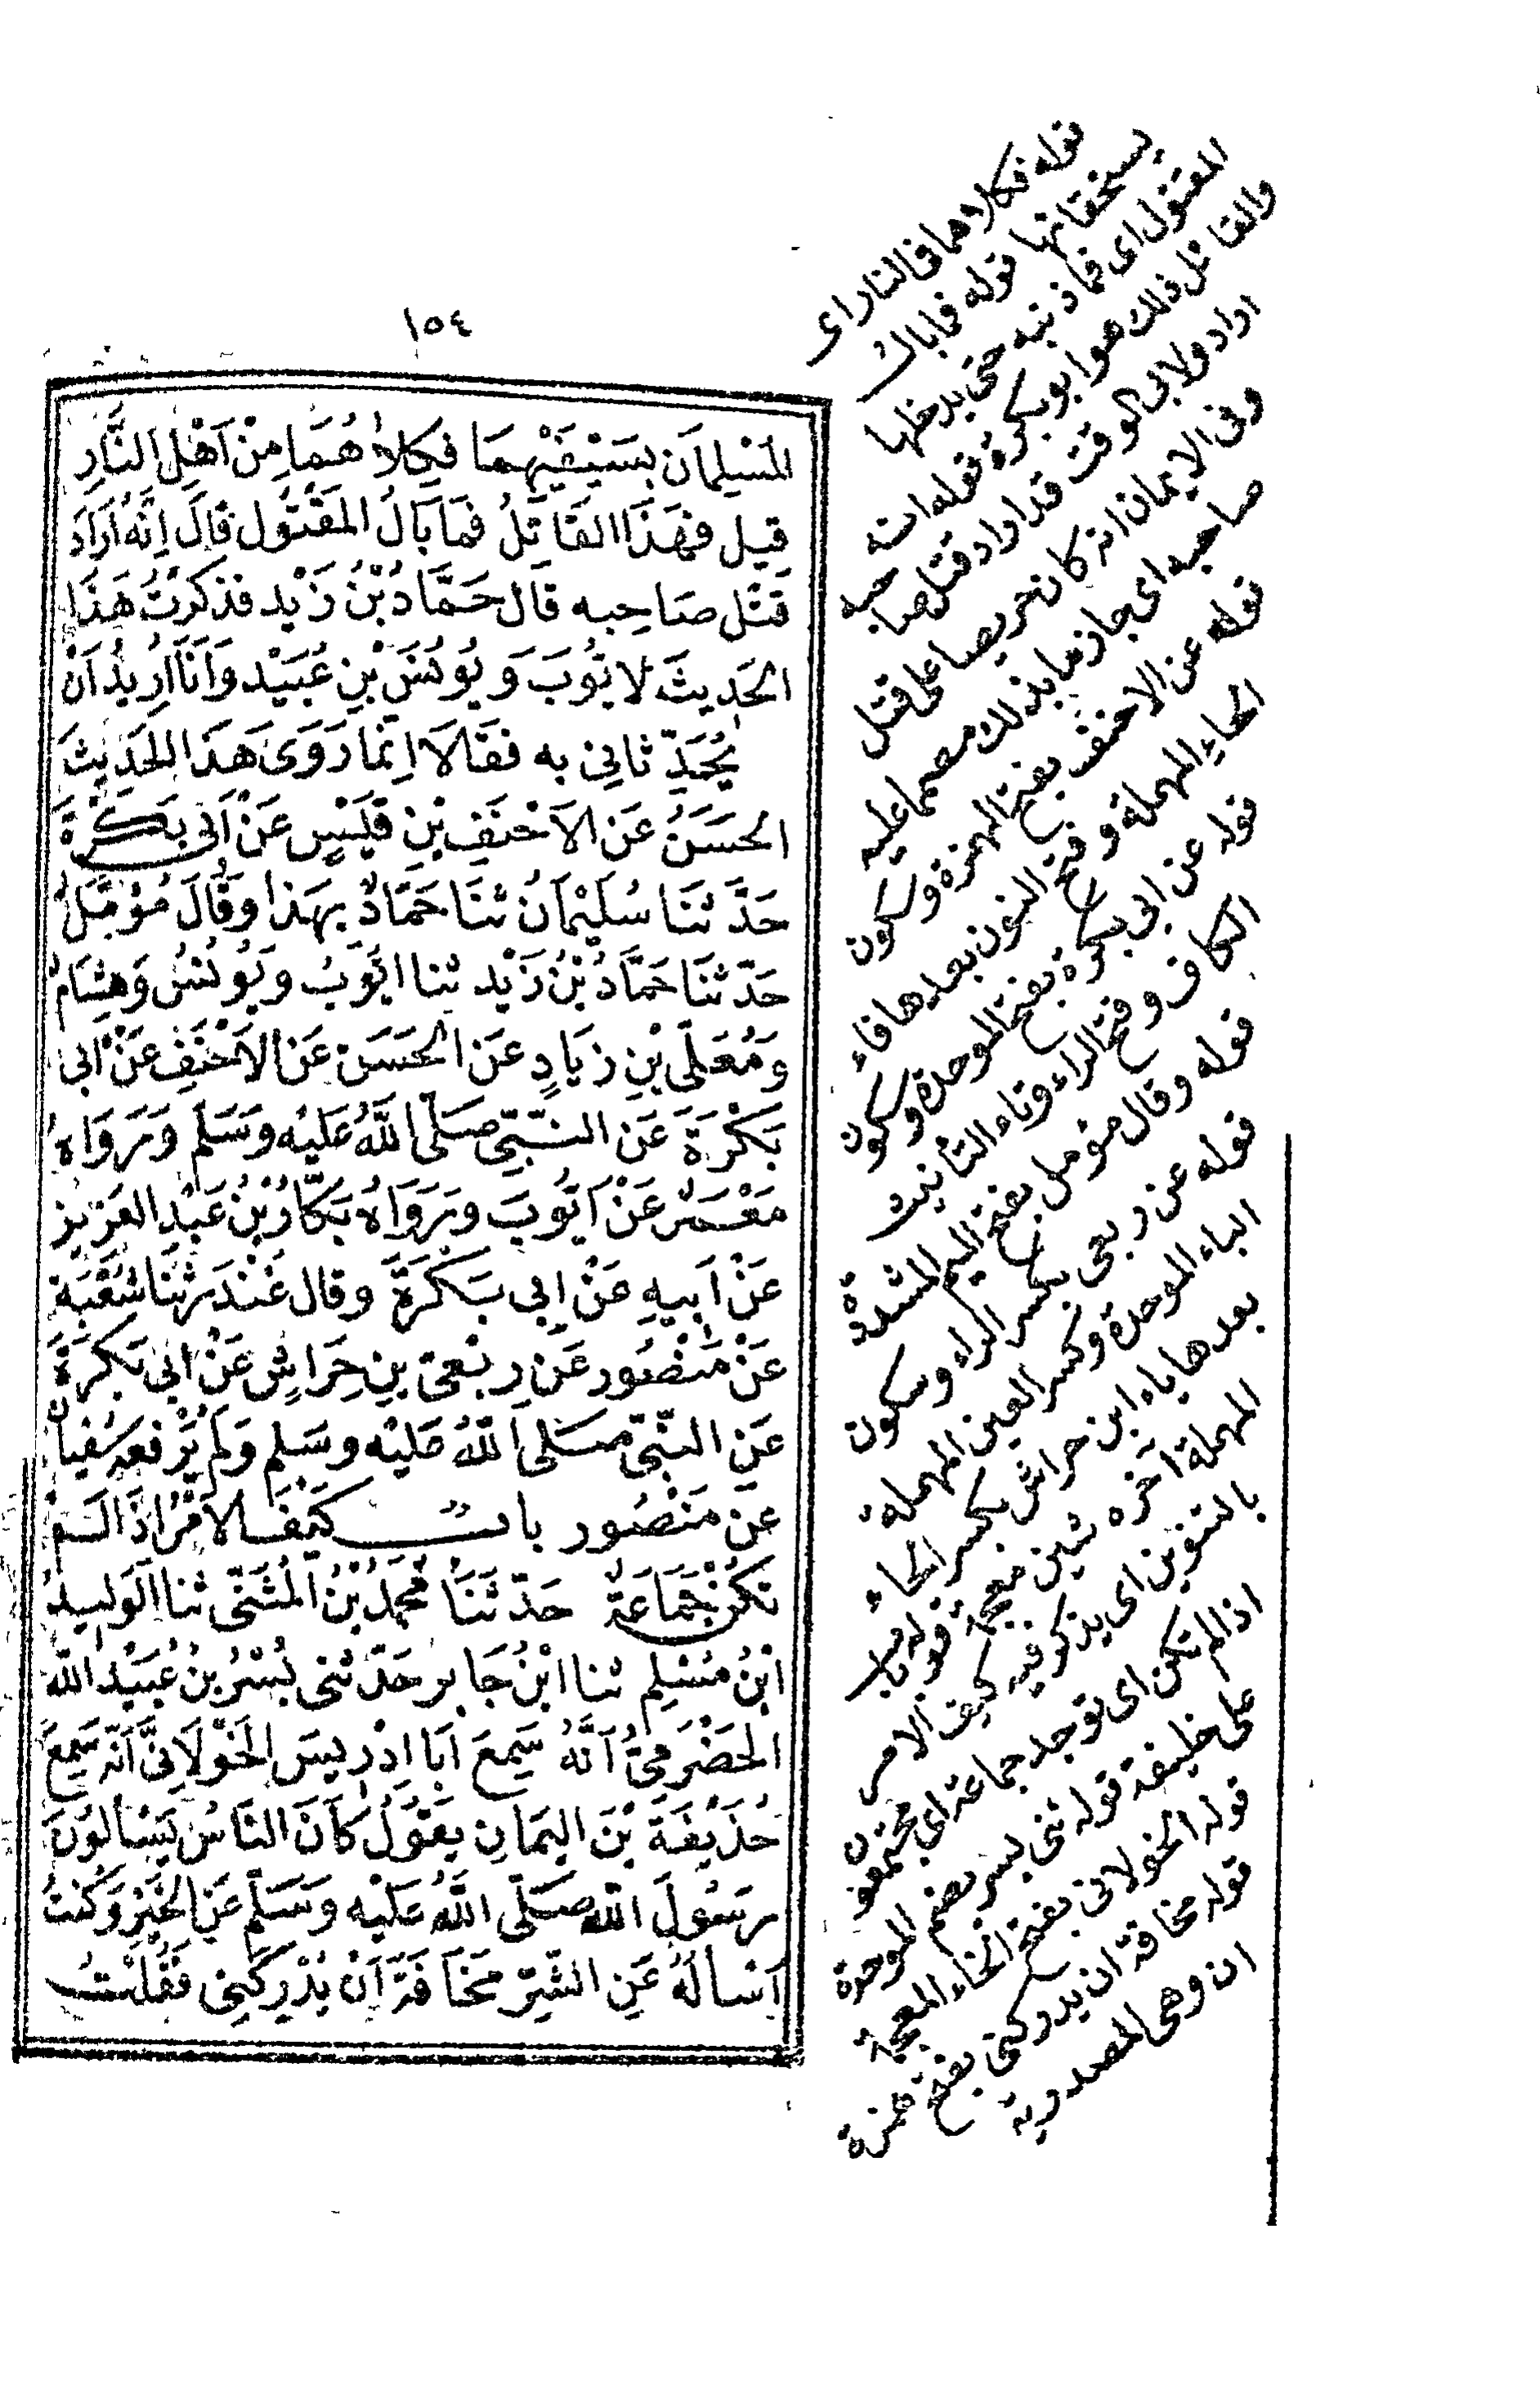 ١٥٤
المُسْلِمَانِ بِسَيْفَيْهِمَا فَكِلاَهُمَا مِنْ اَهْلِ النَّارِ
قِيلَ فَهَذَا القَاتِلُ فَمَا بَالُ المَقْتُول قَالَ اِنَّهُ اَرَادَ
قَتْلَ صَاحِبِه قال حَمَّادُ بْنُ زَيْدٍ فَذَكَرْتُ هَذَا
الحَدِيثَ لايُّوبَ وَيُونُسَ بْنِ عُبَيْد وَاَنَا اُرِيدُ اَنْ
يُحَدِّثانِي به فَقَالَا اِنَّمَا رَوَى هَذَا الحَدِيثَ
الحَسَنُ عَن الاَحْنَفِ بْنِ قَيْسٍ عَنْ اَبِي بَكْرَةَ
حَدَّثنَا سُلَيْمَانُ ثنَا حَمَّادٌ بِهَذا وَقَالَ مُؤَمَّلٌ
حَدّثنَا حَمَّادُ بْنُ زَيْد ثنا ايُّوبُ وَيُونُسُ وَهِشَامٌ
وَمُعَلَّى بْنِ زِيَادٍ عَن الحَسَن عَن الاَحْنَفِ عَنْ اَبي
بَكْرَةَ عَن النَّبِيّ صَلّى اللّهُ عَلَيْه وَسَلم وَرَوَاهُ
مَعْمَرٌ عَنْ اَيُّوبَ وَرَوَاهُ بَكَّارُ بْنُ عَبْدِ العَزِيزِ
عَنْ اَبِيهِ عَنْ اَبِي بَكْرَةَ وقال غُنْدَر ثنَا شُعْبَة
عَنْ مَنْصُور عَن رِبْعِيّ بنِ حِرَاشٍ عَنْ ابي بَكرَةَ
عَنِ النَّبِيّ صَلى اللّهُ عَليْه وسَلم وَلَم يَرْفَعهُ سُفيانُ
عَن مَنْصُور باب كَيْفَ الاَمْرُ اذَا لَمْ
تَكُنْ جَمَاعَةٌ حَدّثنَا مُحَمدُ بْنُ المُثَنّى ثنا الوَلِيدُ
ابْنُ مُسْلِم ثنا ابْنُ جَابر حَدّثنى بُسْرُ بنُ عُبَيْد اللّه
الحَضْرَمِيُّ اَنَّهُ سَمِعَ اَبَا اِدْرِيسَ الخَوْلَانِيَّ اَنّه سَمِعَ
حُذَيْفَةَ بْنَ اليَمَانِ يَقُولُ كَانَ النَاسُ يَسْأَلُونَ
رَسُولَ اللّه صَلّى اللّهُ عَلَيْه وَسَلّم عَن الخَيْرِ وَكُنْتُ
اَسْاَلُهُ عَنِ الشّرِّ مَخَافَةَ اَنْ يُدْرِكَنِى فَقُلْتُ
قوله فكلاهما فى النار اى
يستحقانها قوله فما بال
المقتول اى فما ذنبه حتى يدخلها
والقائل ذلك هو ابو بكرة قوله انه
اراد ولابى الوقت قد اراد قتل صاحبه
وفى الايمان انه كان حريصا على قتل
صاحبه اى جازما بذلك مصمما عليه
قوله عن الاحنف بفتح الهمزة وسكون
الحاء المهملة وفتح النون بعدها فاء
قوله عن ابى بكرة بفتح الموحدة وسكون
الكاف وفتح الراء وتاء التأنيث
قوله وقال مؤمل بفتح الميم المشددة
قوله عن ربعى بكسر الراء وسكون
الباء الموحدة وكسر العين المهملة
بعدها ياء ابن حراش بكسر الحاء
المهملة آخره شين معجمة قوله باب
بالتنوين اى يذكر فيه كيف الامر
اذا لم تكن اى توجد جماعة اى مجتمعون
على خليفة قوله ثنى بسر بضم الموحدة
قوله الخولانى بفتح الخاء المعجمة
قوله مخافة ان يدركنى بفتح همزة
ان وهى المصدرية